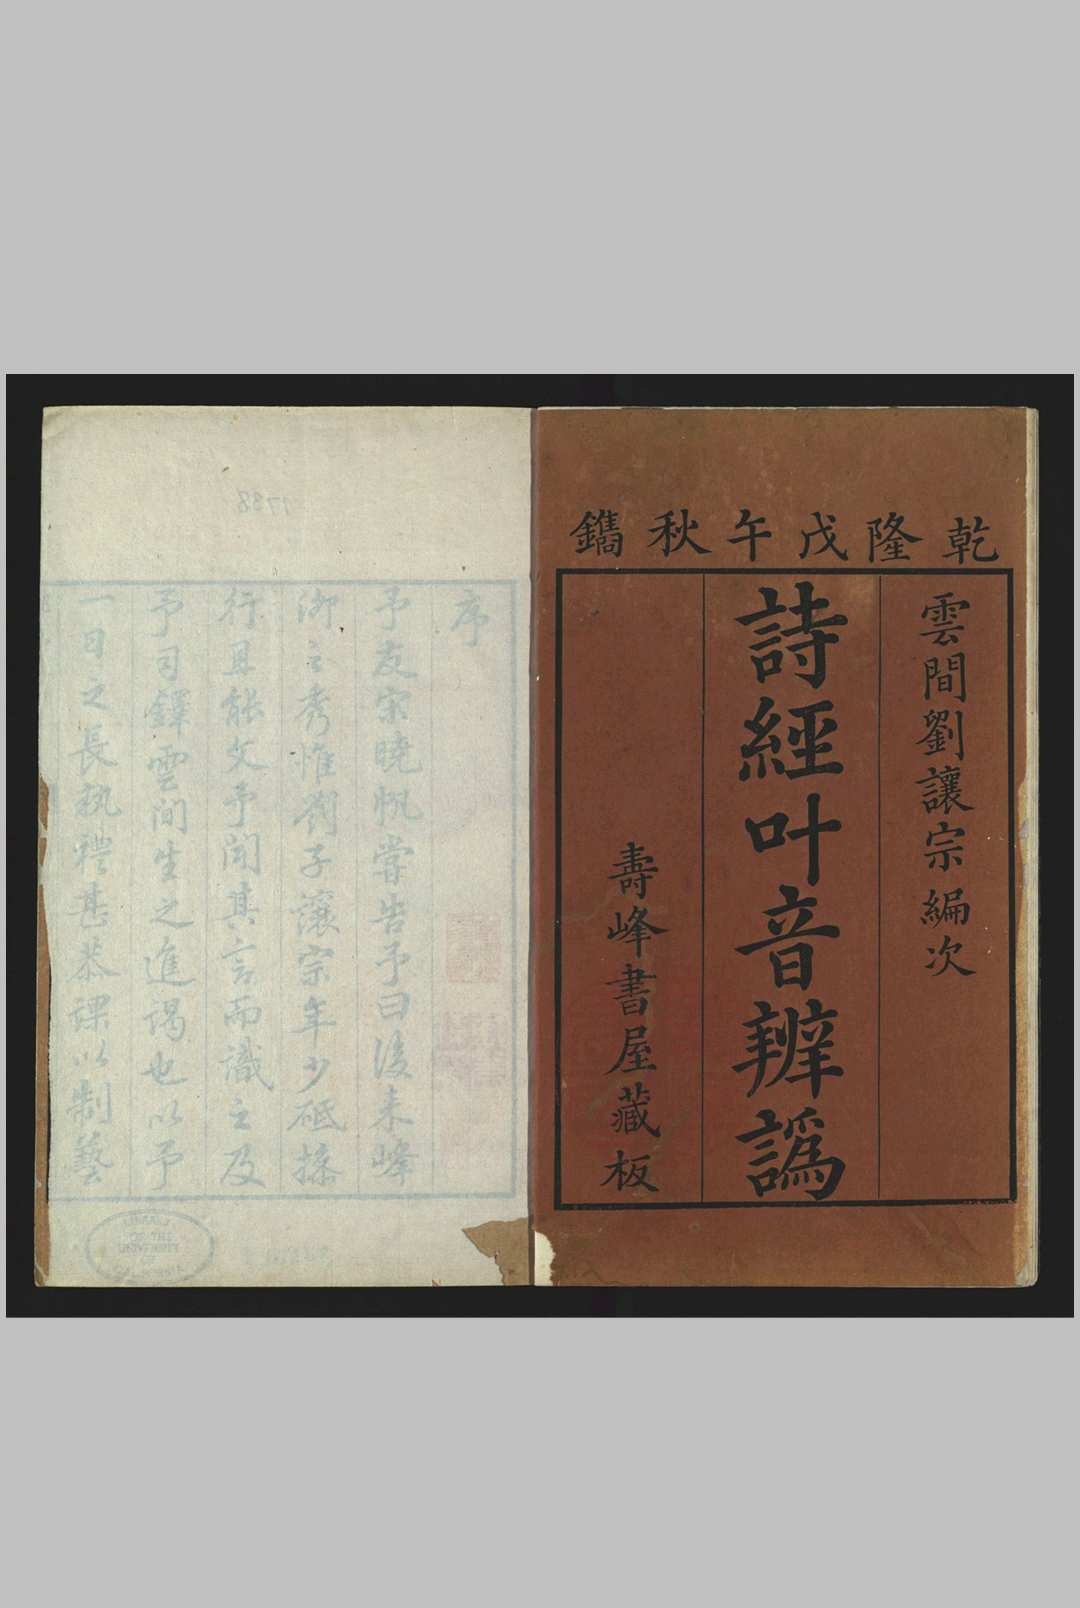 乾隆戊午秋鐫
雲間劉讓宗編次
詩經叶音辨譌
壽峰書屋藏板
序
予友宋曉帆嘗告予曰後来峰
泖之秀惟劉子讓宗年少砥操
行且能文予聞其言而識之及
予司鐸雲间生之進謁也以予
一日之長执禮甚恭课以制藝
1738
LIBRARY
OF THE
UNIVERSITY
OF